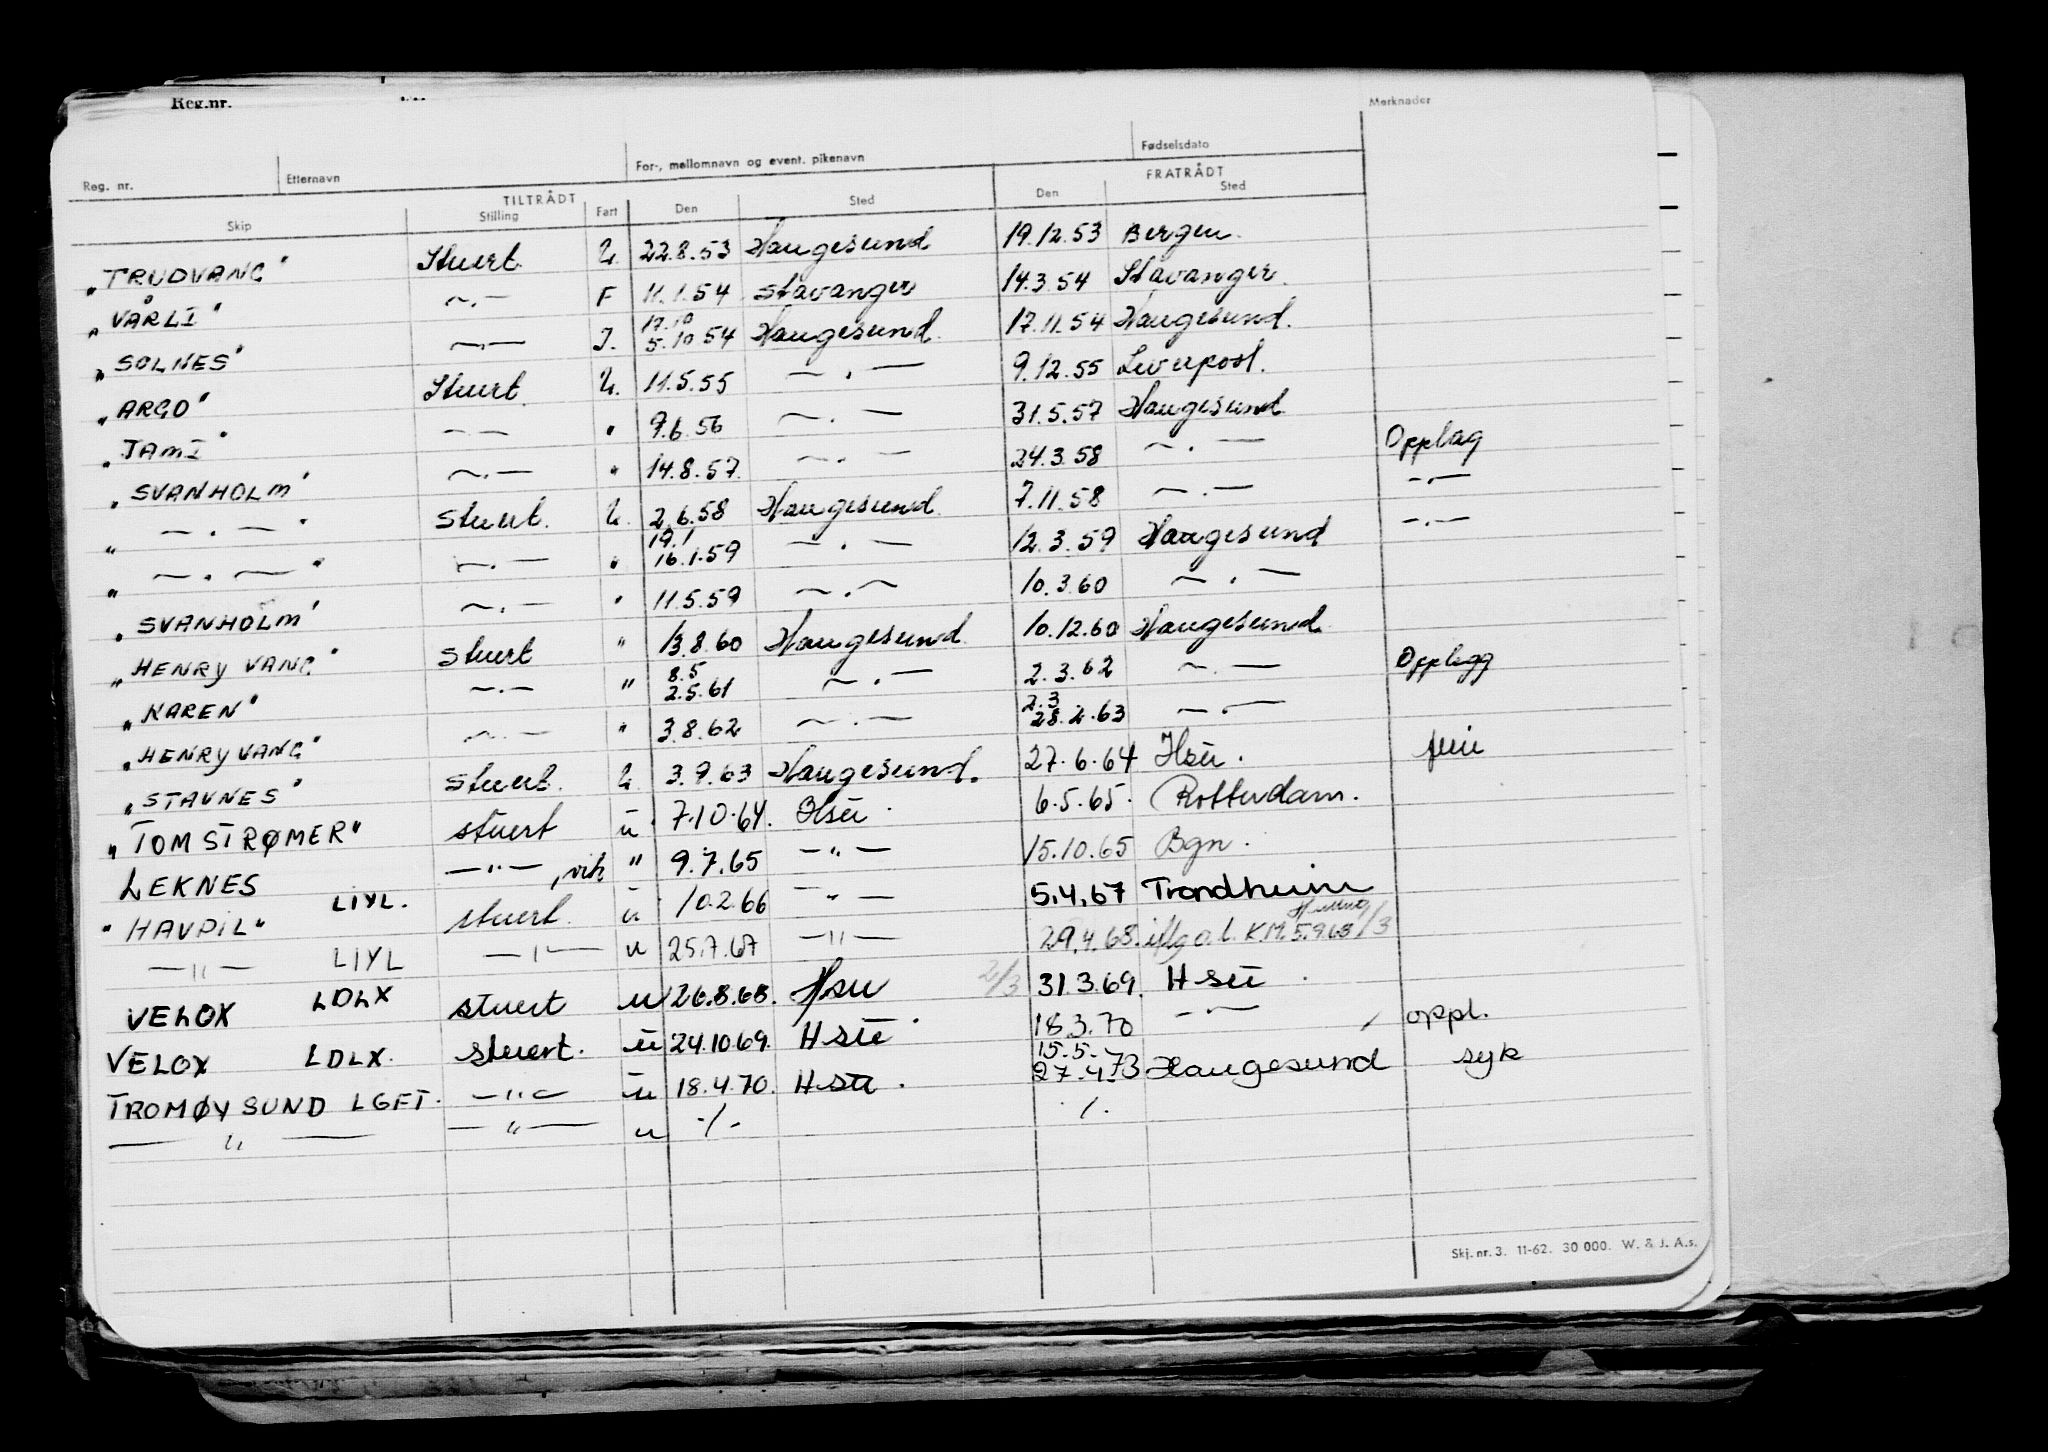 Reg.nr.
Merknader
Reg. nr. Etternavn For-, mellomnavn og event. pikenavn Fødselsdato
TILTRÅDT FRATRÅDT
Skip Stilling Fart Den Sted Den Sted
"TRUDVANG" Stuert U. 22.8.53 Haugesund 19.12.53 Bergen.
"VÅRLI" —.— F 11.1.54 Stavanger 14.3.54 Stavanger.
"SOLNES" —.— I. 17.10 5.10 54 Haugesund. 17.11.54 Haugesund.
"ARGO" Stuert U. 11.5.55 —.— 9.12.55 Liverpool.
"JAMI" —.— " 9.6.56 —.— 31.5.57 Haugesund
"SVANHOLM" —.— " 14.8.57. —.— 24.3.58 —.— Opplag
"—.—" Stuert. U. 2.6.58 Haugesund. 7.11.58 —.— —.—
"—.—" —.— " 19.1 16.1.59 —.— 12.3.59 Haugesund —.—
"SVANHOLM" —.— " 11.5.59 —.— 10.3.60 —.—
"HENRY VANG" Stuert " 13.8.60 Haugesund 10.12.60 Haugesund
"KAREN" —.— " 8.5 2.5.61 —.— 2.3.62 —.— Opplegg
"HENRY VANG" —.— " 3.8.62 —.— 2.3 28.2.63 —.—
"STAVNES" Stuert. U 3.9.63 Haugesund. 27.6.64 Hsu. ferie
"TOM STRØMER" stuert u 7.10.64. Hsu. 6.5.65. Rotterdam.
LEKNES —"—, vik " 9.7.65 —"— 15.10.65 Bgn.
"HAVPIL" LIYL. stuert. u 10.2.66 —"— 5.4.67 Trondheim
—"— LIYL —"— u 25.7.67 —"— 29.4.68. K.M. 5.9.68 /3
VELOX LDLX stuert u 26.8.68. Hsu 2/3 31.3.69. Hsu.
VELOX LDLX. Stuert. u 24.10.69. Hsu. 18.3.70 —"— oppl.
TROMØYSUND LGET. —"— u 18.4.70. Hsu. 15.5.- 27.4.73 Haugesund syk
—"— —"— u -/- ./.
Skj. nr. 3. 11-62. 30 000. W. & J. A.s.